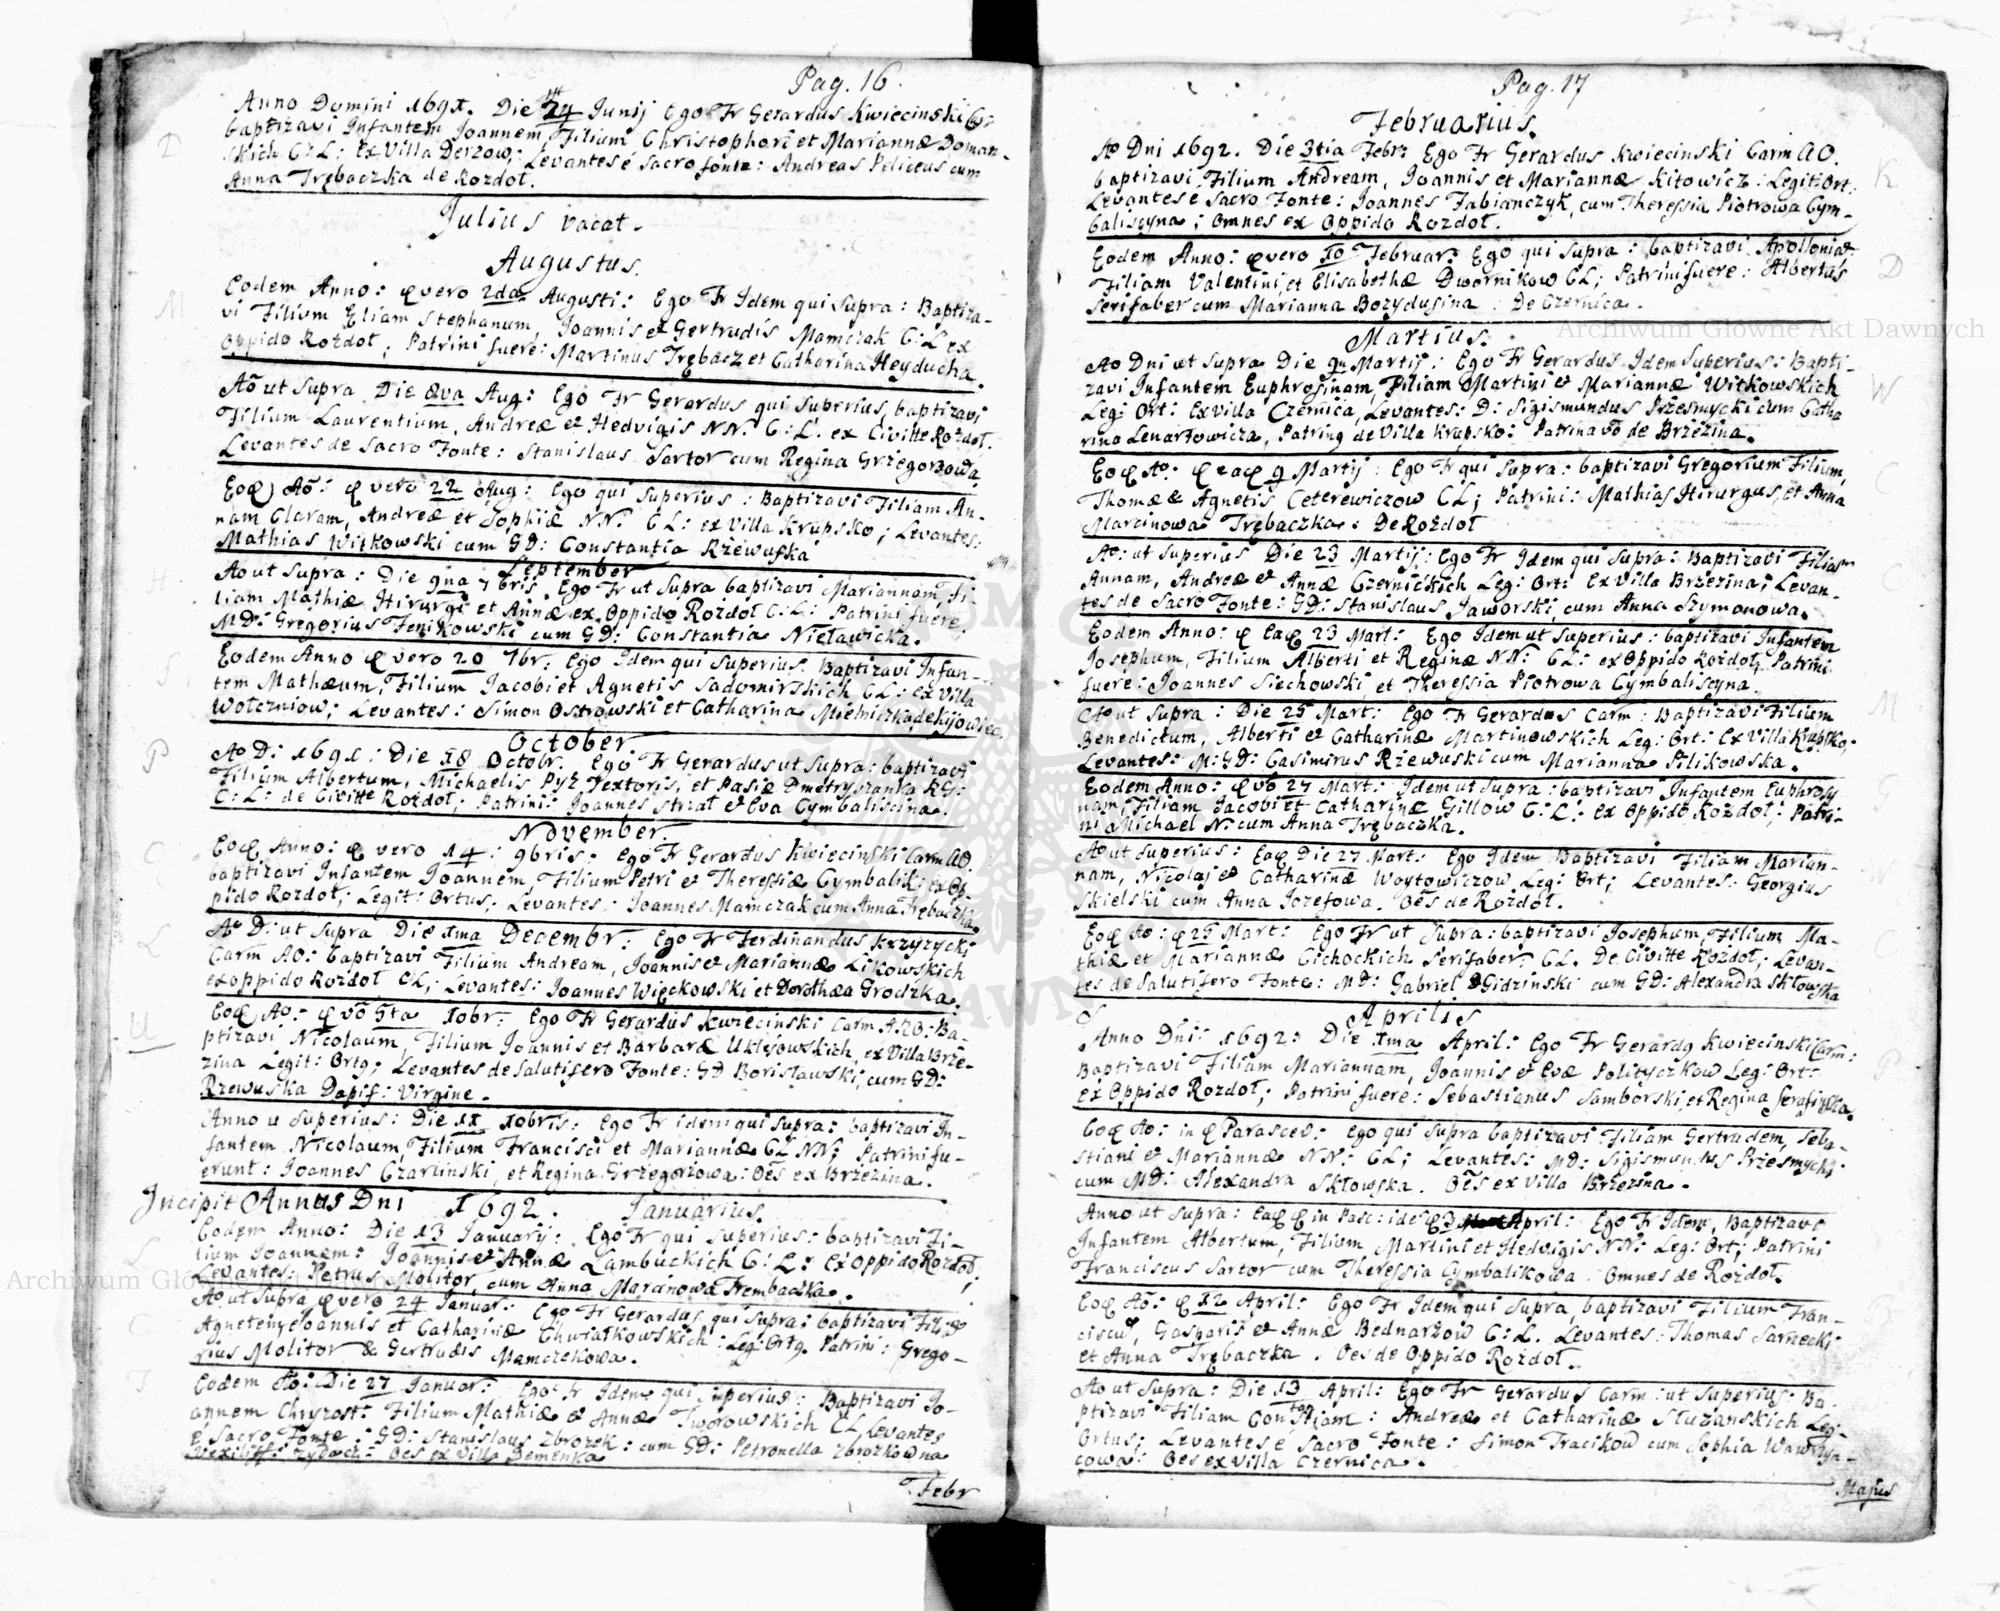 Pag. 16.
Anno Domini 1691. Die 24 Junij Ego Fr Gerardus Kwiecinski C:
baptizavi Infantem Joannem, Filium Christophori et Mariannæ Doman-
skich C: L: ex Villa Derzow; Levantes é Sacro fonte: Andreas Peliceus cum
Anna Trębaczka de Rozdoł.
Julius vacat.
Augustus.
Eodem Anno: vero 2da Augusti: Ego Fr Idem qui Supra: Baptiza-
vi Filium Eliam Stephanum, Joannis et Gertrudis Mamczak C: L ex
Oppido Rozdoł; Patrini fuere: Martinus Trębacz et Catharina Heyducha.
Aõ ut Supra Die 8va Aug: Ego Fr Gerardus qui Superius, baptizavi
Filium Laurentium, Andreæ et Hedvigis NN. C: L. ex Civitte Rozdoł.
Levantes de Sacro Fonte: Stanislaus Sartor cum Regina Grzegorzowa.
Aõ: vero 22 Aug: Ego qui Superius: Baptizavi Filiam An-
nam Claram, Andreæ et Sophiæ NN: C L: ex Villa Krupsko; Levantes:
Mathias Witkowski cum GD: Constantia Rzewuska
September
Ao ut Supra: Die 9na 7bris. Ego Fr ut Supra baptizavi Mariannam, Fi-
liam Mathiæ Hirurgi et Annæ ex Oppido Rozdoł C: L: Patrini fuere:
MD: Gregorius Fenikowski cum GD: Constantia Nietawicka.
Eodem Anno vero 20 7br: Ego Idem qui Superius, Baptizavi Infan-
tem Mathæum, Filium Jacobi et Agnetis Sadomirskich C L: ex Villa
Wołczniow; Levantes: Simon Ostrowski et Catharina Mielniczka de Kijowiec
October
Ao D: 1691: Die 18 Octobr. Ego Fr Gerardus ut Supra: baptizavi
Filium Albertum, Michaelis Pyz Textoris, et Pasiæ Dmetryszanka RG:
C: L: de Civitte Rozdoł; Patrini: Joannes Strzał et Eva Cymbaliscina.
November.
Anno: vero 14: 9bris: Ego Fr Gerardus Kwiecinski Carm AO.
baptizavi Infantem Joannem, Filium Petri et Theressiæ Cymbalik: ex Op-
pido Rozdoł; Legit: Ortus; Levantes: Joannes Mamczak cum Anna Trębaczka
Ao D: ut Supra Die 1ma Decembr: Ego Fr Ferdinandus Krzyzycki
Carm AO: baptizavi Filium Andream, Joannis et Mariannæ Likowskich
ex oppido Rozdoł C L; Levantes: Joannes Więckowski et Dorothæa Grodzka.
Ao: vo 5ta 10br: Ego Fr Gerardus Kwiecinski Carm A.O: Ba-
ptizavi Nicolaum, Filium Joannis et Barbaræ Uklejowskich, ex Villa Brze-
zina Legit: Ort; Levantes de Salutifero Fonte: GD Borisławski, cum GD:
Rzewuska Dapif: Virgine.
Anno ut Superius: Die 11 10bris: Ego Fr idem qui Supra: baptizavi In-
fantem Nicolaum, Filium Francisci et Mariannæ C L NN; Patrini fu-
erunt: Joannes Czarlinski, et Regina Grzegorzowa: Oẽs ex Brzezina.
Incipit Annus Dni 1692. Januarius.
Eodem Anno: Die 13 January: Ego Fr qui Superius: baptizavi Fi-
lium Joannem: Joannis et Annæ Lambuckich C: L: Ex Oppido Rozdoł;
Levantes: Petrus Molitor, cum Anna Marcinowa Trembaczka.
Ao ut Supra vero 24 Januar: Ego Fr Gerardus qui Supra: baptizavi Filiam
Agnetem, Joannis et Catharinæ Chwiałkowskich: Leg: Ort. Patrini: Grego-
rius Molitor & Gertrudis Mamczekowa.
Eodem Ao: Die 27 Januar: Ego Fr Idem qui Superius: Baptizavi Jo-
annem Chryzost: Filium Mathiæ et Annæ Tworowskich C L, Levantes
é Sacro Fonte: GD: Stanislaus Zbrozek: cum GD: Petronella Zbrozkowna
Oes ex Villa Demenka
Febr
Pag. 17
Februarius.
Ao Dni 1692. Die 3tia Febr: Ego Fr Gerardus Kwiecinski Carm AO.
baptizavi Filium Andream, Joannis et Mariannæ Kitowicz: Legit: Ort:
Levantes é Sacro Fonte: Joannes Fabianczyk, cum Theressia Piotrowa Cym-
baliscyna; Omnes ex Oppido Rozdoł.
Eodem Anno: vero 10 Februar: Ego qui Supra: baptizavi Apolloniã
Filiam Valentini, et Elisabethæ Dwornikow C L; Patrini fuere: Albertus
Serifaber cum Marianna Bozydusina: De Czernica.
Martius.
Ao Dni ut Supra Die Martij: Ego Fr Gerardus Idem Superius: Bapti-
zavi Infantem Euphrosinam, Filiam Martini et Mariannæ Witkowskich
Leg: Ort: Ex Villa Czernica, Levantes: D: Sigismundus Przesmycki cum Catha
rina Lenartowicza, Patrin9 de Villa Krupsko: Patrina vo de Brzezina.
Ao: 9 Martij: Ego Fr qui Supra: baptizavi Gregorium Filium,
Thomæ & Agnetis Ceterewiczow C L; Patrini: Mathias Hirurgus, et Anna
Marcinowa Trębaczka: De Rozdoł
Ao: ut Superius Die 23 Martij: Ego Fr Idem qui Supra: Baptizavi Filiam
Annam, Andreæ et Annæ Czernickich Leg: Ort: Ex Villa Brzezina; Levan-
tes de Sacro Fonte: GD: Stanislaus Jaworski, cum Anna Szymonowa.
Eodem Anno: 23 Mart: Ego Idem ut Superius: baptizavi Infantem
Josephum, Filium Alberti et Reginæ NN: C L: ex Oppido Rozdoł, Patrini
fuere: Joannes Siechowski et Theressia Piotrowa Cymbaliscyna.
Ao ut Supra: Die 25 Mart: Ego Fr Gerardus Carm: Baptizavi Filium
Benedictum, Alberti et Catharinæ Martinowskich Leg: Ort: Ex Villa Krupsko;
Levantes: M: GD: Casimirus Rzewuski cum Marianna Pilikowska.
Eodem Anno: vo 27 Mart: Idem ut Supra: baptizavi Infantem Euphrosy
nam, Filiam Jacobi et Catharinæ Gillow C: L: ex Oppido Rozdoł; Patri-
ni Michael N: cum Anna Trębaczka.
Ao ut Superius: Die 27 Mart: Ego Idem Baptizavi Filiam Marian-
nam, Nicolaj et Catharinæ Woytowiczow Leg: Ort; Levantes: Georgius
Skielski cum Anna Jozefowa. Oẽs de Rozdoł.
Ao: 29 Mart: Ego Fr ut Supra: baptizavi Josephum, Filium Ma-
thiæ et Mariannæ Cichockich Serifaber: C L. De Civitte Rozdoł; Levan-
tes de Salutifero Fonte: MD: Gabriel Gidzinski cum GD: Alexandra Skłowska
Aprilis
Anno Dni: 1692: Die 1ma April: Ego Fr Gerard9 Kwiecinski Carm:
Baptizavi Filiam Mariannam, Joannis et Evæ Polityczkow Leg: Ort:
ex Oppido Rozdoł; Patrini fuere: Sebastianus Samborski, et Regina
Ao: in Parasced: Ego qui Supra baptizavi Filiam Gertrudem, Seba-
stiani et Mariannæ NN: C L; Levantes: MD: Sigismundus Przesmycki
cum MD: Alexandra Skłowska. Oẽs ex Villa Brzezina.
Anno ut Supra: in Pasc: 3 April: Ego Fr Idem, Baptizavi
Infantem Albertum, Filium Martini et Hedvigis NN: Leg: Ort; Patrini
Franciscus Sartor cum Theressia Cymbalikowa. Omnes de Rozdoł.
Aõ: 12 April: Ego Fr Idem qui Supra, baptizavi Filium Fran-
ciscũ, Gasparis et Annæ Bednarzow C: L. Levantes: Thomas Sarnecki
et Anna Trębaczka. Oes de Oppido Rozdoł.
Ao ut Supra: Die 13 April: Ego Fr Gerardus Carm: ut Superius: Ba-
ptizavi Filiam Constantiam: Andreæ et Catharinæ Słuzanskich Leg:
Ortus; Levantes é Sacro Fonte: Simon Tracikow cum Sophia Wawrzyn-
cowa: Oes ex Villa Czernica.
Majus
Archiwum Główne Akt Dawnych
Archiwum Główne Akt Dawnych